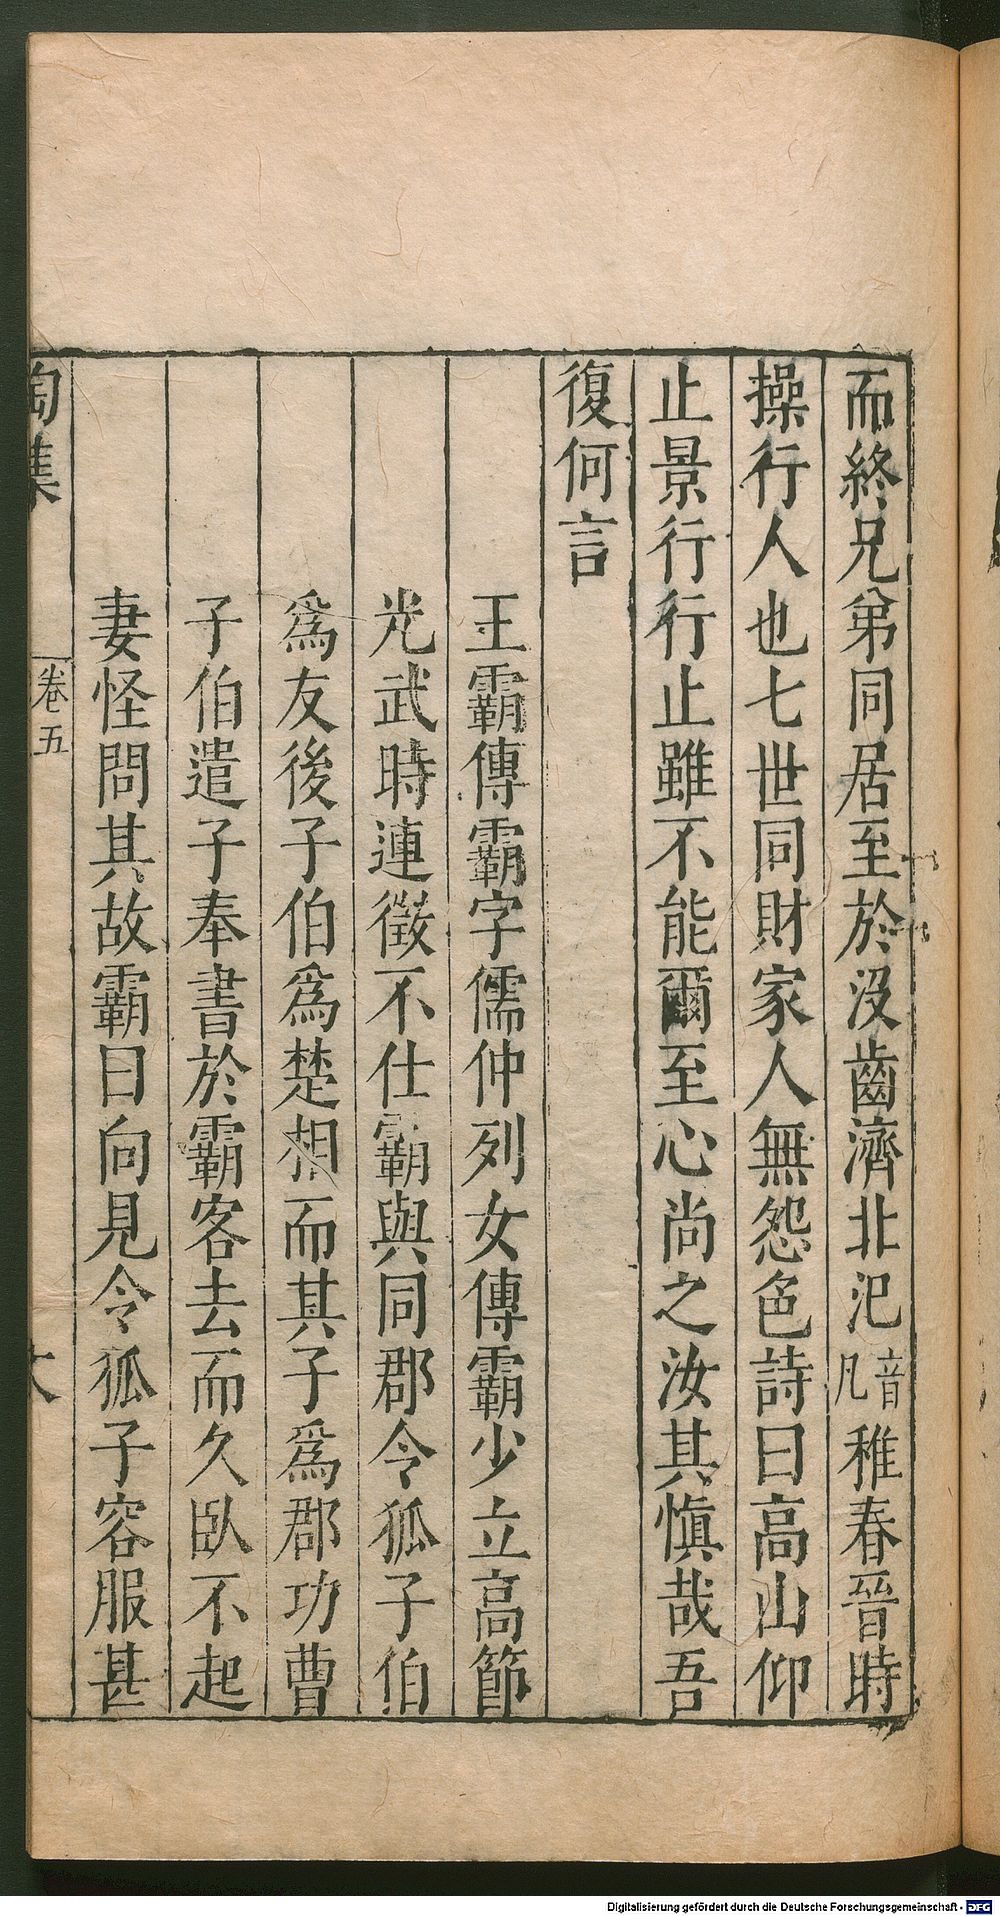 而終兄弟同居至於没齒濟北氾音凡稚春晉時
操行人也七世同財家人無怨色詩曰高山仰
止景行行止雖不能爾至心尚之汝其慎哉吾
復何言
王霸傳霸字儒仲列女傳霸少立高節
光武時連徵不仕霸與同郡令狐子伯
爲友後子伯爲楚相而其子爲郡功曹
子伯遣子奉書於霸客去而久臥不起
妻怪問其故霸曰向見令狐子容服甚
陶集
卷五
Digitalisierung gefördert durch die Deutsche Forschungsgemeinschaft - DFG